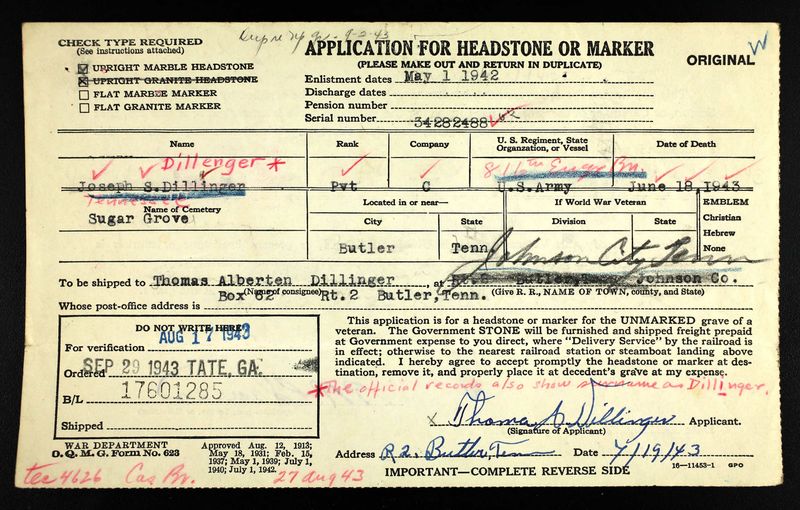 CHECK TYPE REQUIRED
(See instructions attached)
UPRIGHT MARBLE HEADSTONE
UPRIGHT GRANITE HEADSTONE
FLAT MARBLE MARKER
FLAT GRANITE MARKER
9-2-43
APPLICATION FOR HEADSTONE OR MARKER
(PLEASE MAKE OUT AND RETURN IN DUPLICATE)
ORIGINAL
W
Enlistment dates May 1 1942
Discharge dates
Pension number
Serial number 34282488
Name Rank Company U.S. Regiment, State Organization, or Vessel Date of Death
Dillenger * 816th Engr Bn.
Joseph S.Dillinger Pvt C U.S.Army June 18,1943
Tennessee
Name of Cemetery Located in or near— If World War Veteran EMBLEM
Sugar Grove City State Division State Christian
Hebrew
Butler Tenn. None
Johnson City Tenn
To be shipped to Thomas Alberten Dillinger, at Rt.2 Butler, Johnson Co.
(Name of consignee) (Give R. R., NAME OF TOWN, county, and State)
Whose post-office address is Box 62 Rt.2 Butler,Tenn.
DO NOT WRITE HERE
For verification AUG 17 1943
Ordered SEP 29 1943 TATE, GA.
B/L 17601285
Shipped
This application is for a headstone or marker for the UNMARKED grave of a
veteran. The Government STONE will be furnished and shipped freight prepaid
at Government expense to you direct, where "Delivery Service" by the railroad is
in effect; otherwise to the nearest railroad station or steamboat landing above
indicated. I hereby agree to accept promptly the headstone or marker at des-
tination, remove it, and properly place it at decedent's grave at my expense.
*The official records also show surname as Dillinger.
x Thomas A Dillinger Applicant.
(Signature of Applicant)
WAR DEPARTMENT
O. Q. M. G. Form No. 623
Approved Aug. 12, 1913;
May 18, 1931; Feb. 15,
1937; May 1, 1939; July 1,
1940; July 1, 1942.
Address R2. Butler, Tenn Date 7/19/43
IMPORTANT—COMPLETE REVERSE SIDE
16—11453-1 GPO
tee 4626 Cas Br. 27 aug 43